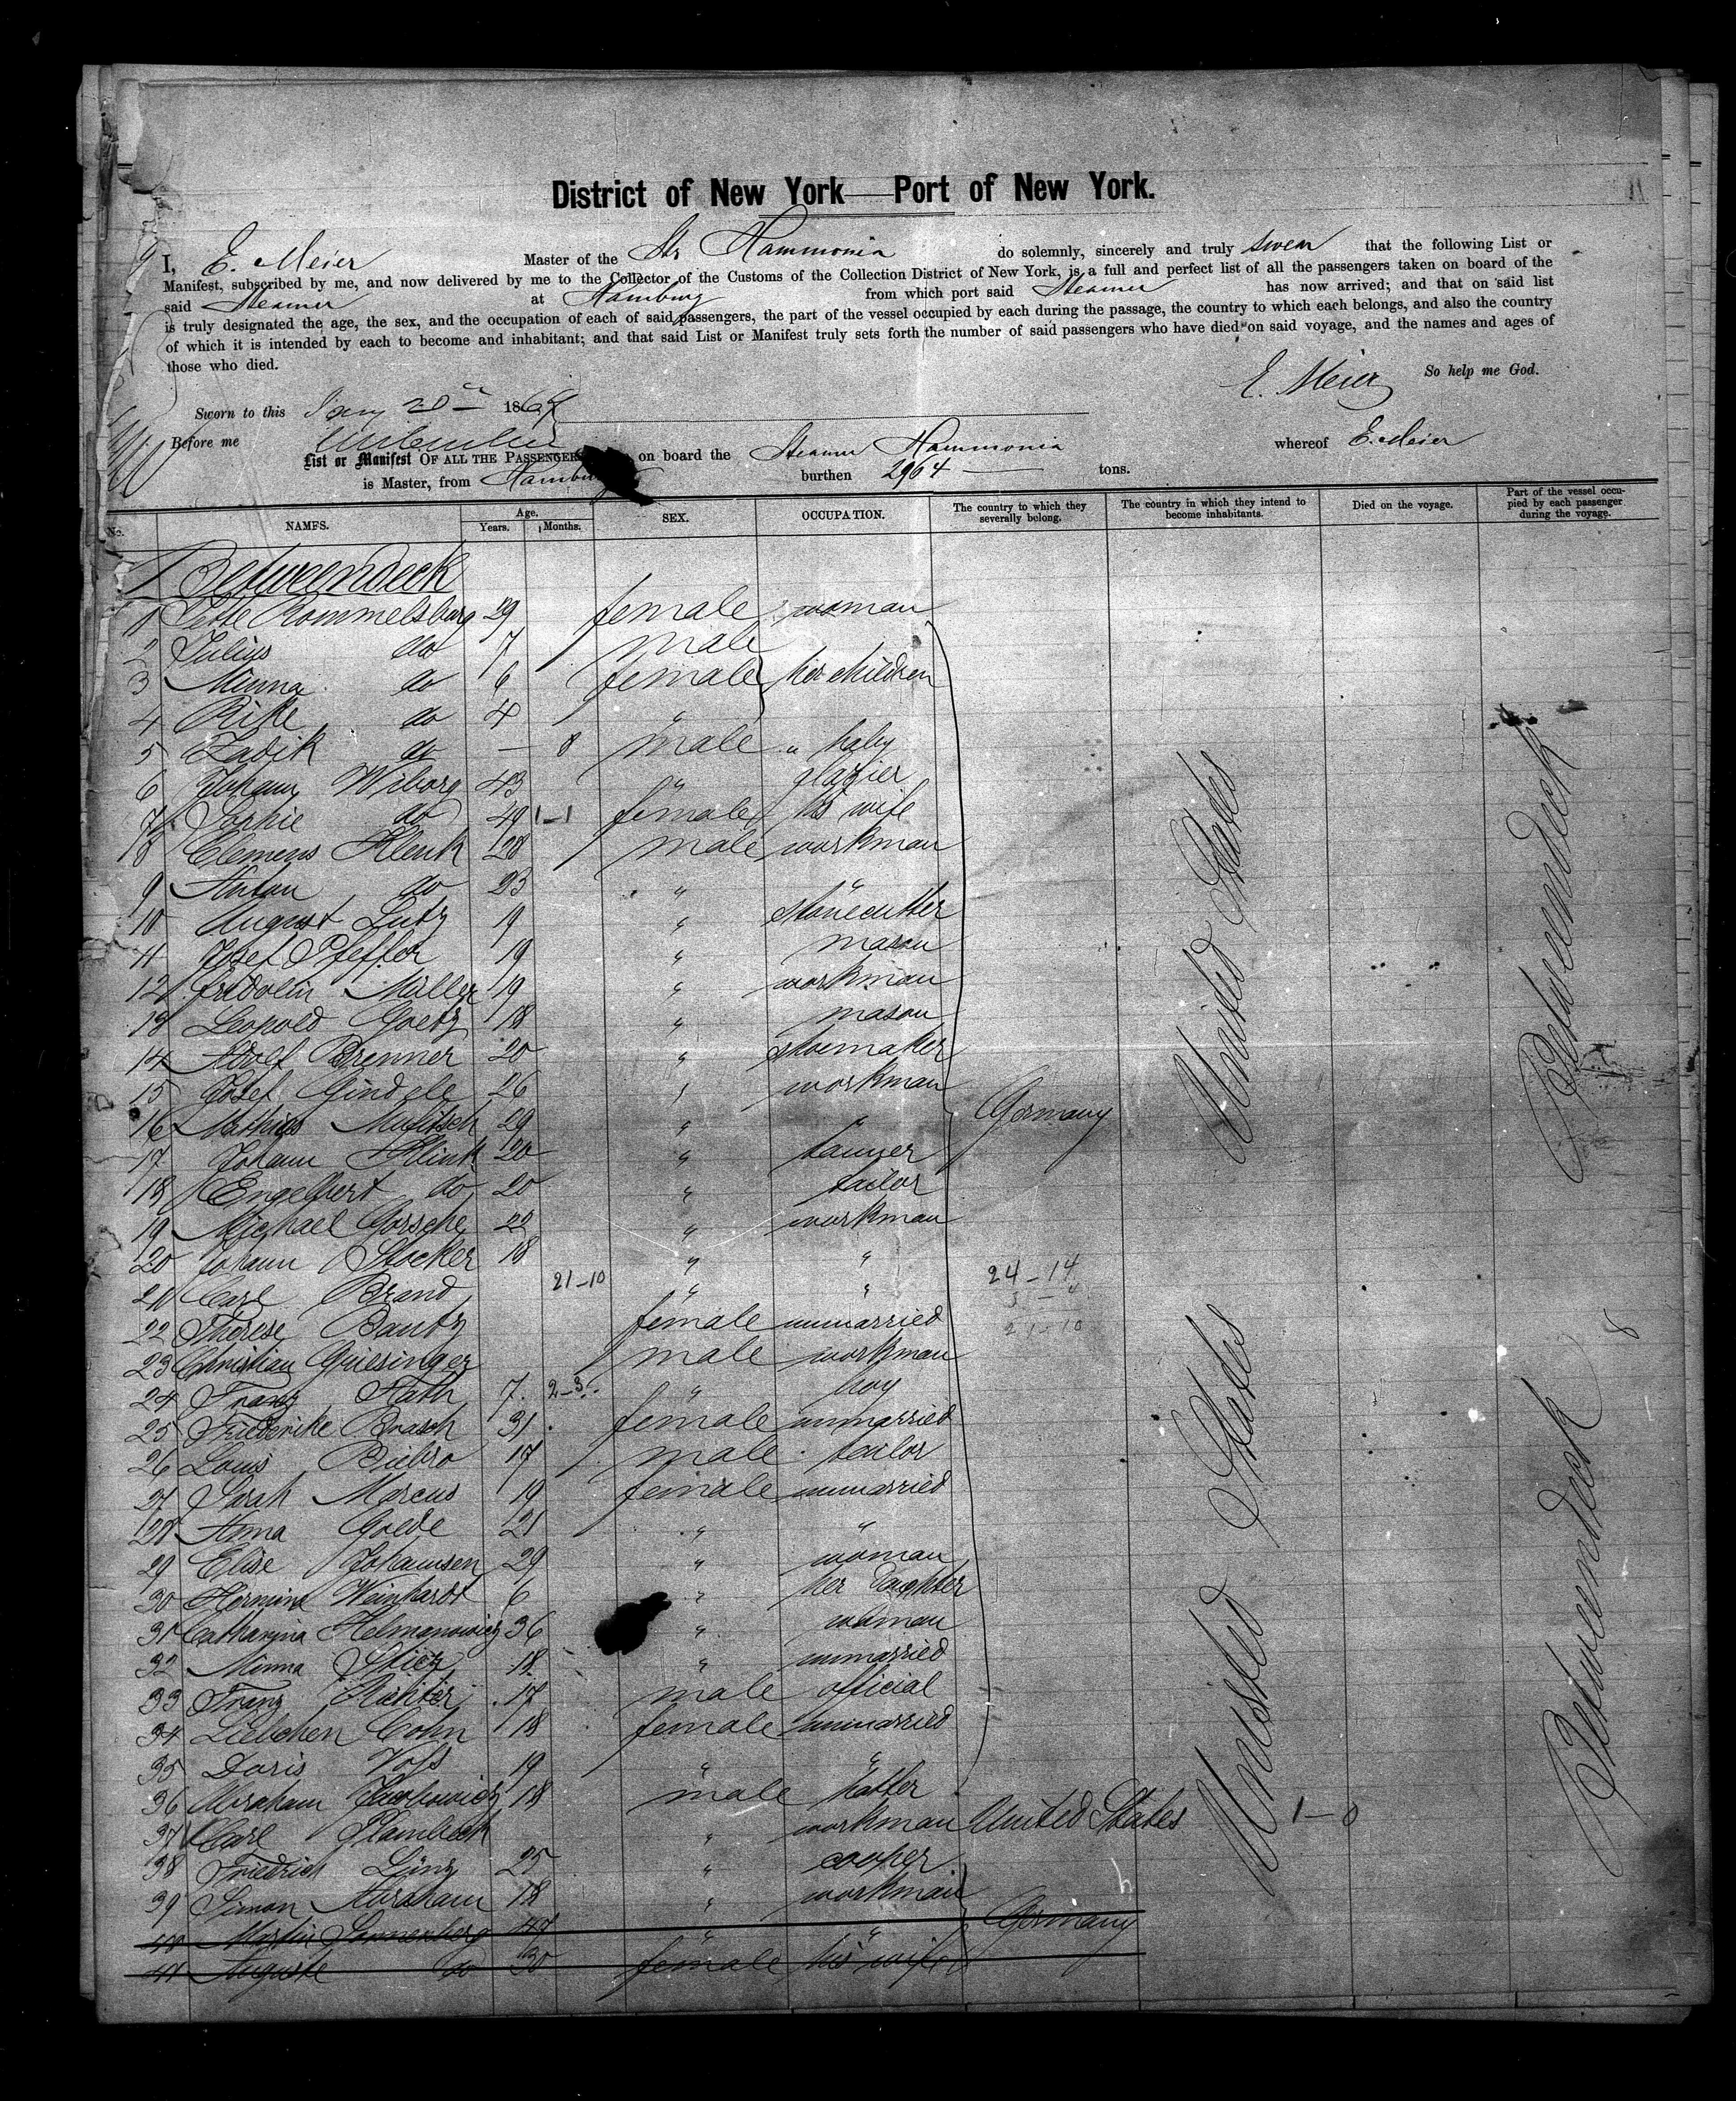 District of New York — Port of New York.
I, E. Meier Master of the Str Hammonia do solemnly, sincerely and truly swear that the following List or
Manifest, subscribed by me, and now delivered by me to the Collector of the Customs of the Collection District of New York, is a full and perfect list of all the passengers taken on board of the
said Steamer at Hamburg from which port said Steamer has now arrived; and that on said list
is truly designated the age, the sex, and the occupation of each of said passengers, the part of the vessel occupied by each during the passage, the country to which each belongs, and also the country
of which it is intended by each to become and inhabitant; and that said List or Manifest truly sets forth the number of said passengers who have died on said voyage, and the names and ages of
those who died.
So help me God.
E. Meier
Sworn to this Jany 20th 1869
Before me
List or Manifest OF ALL THE PASSENGERS on board the Steamer Hammonia whereof E. Meier
is Master, from Hamburg burthen 2964 — tons.
No. NAMES. Age. Years. Months. SEX. OCCUPATION. The country to which they severally belong. The country in which they intend to become inhabitants. Died on the voyage. Part of the vessel occupied by each passenger during the voyage.
Betweendeck
1 Rommelsburg 29 female woman
2 Julius do 7 male
3 Minna do 6 female her children
4 Rike do 4 "
5 Zadik do — 8 male " baby
6 Johann Wiborg 43 " glazier
7 Sophie do 49 1-1 female his wife
8 Clemens Klenk 28 male workman
9 Anton do 23 " "
10 August Lutz 19 " stonecutter
11 Josef Pfeffer 19 " mason
12 Fridolin Miller 19 " workman
13 Leopold Goetz 18 " mason
14 Adolf Brenner 20 " shoemaker
15 Josef Gindele 26 " workman
16 Mathias 29 " " Germany United States Betweendeck
17 Johann Klink 20 " tanner
18 Engelbert do 20 " tailor
19 Michael Gorsche 22 " workman
20 Johann Stocker 18 " "
21 Carl Brand 21-10 " " 24-14
22 Therese Bautz female unmarried 21-10
23 Christian Griesinger male workman
24 Franz Hath 7 2-3 " boy
25 Friederike Brasch 31 female unmarried
26 Louis 17 male tailor
27 Sarah Marcus 19 female unmarried
28 Anna Goede 21 " "
29 Elise Johannsen 29 " woman
30 Hermina Weinhardt 6 " her daughter
31 Catharina Helmanowicz 36 " woman
32 Minna 18 " unmarried
33 Franz Richter 17 male official
34 Liebchen Cohn 18 female unmarried
35 Doris Voss 19 " "
36 Abraham 18 male hatter
37 Carl Plambeck " workman United States 1-0
38 Friedrich Lünz 25 " cooper
39 Simon Abraham 18 " workman
40 Martin Sonnenberg 49 " " Germany United States Betweendeck
41 Auguste do 30 female his wife